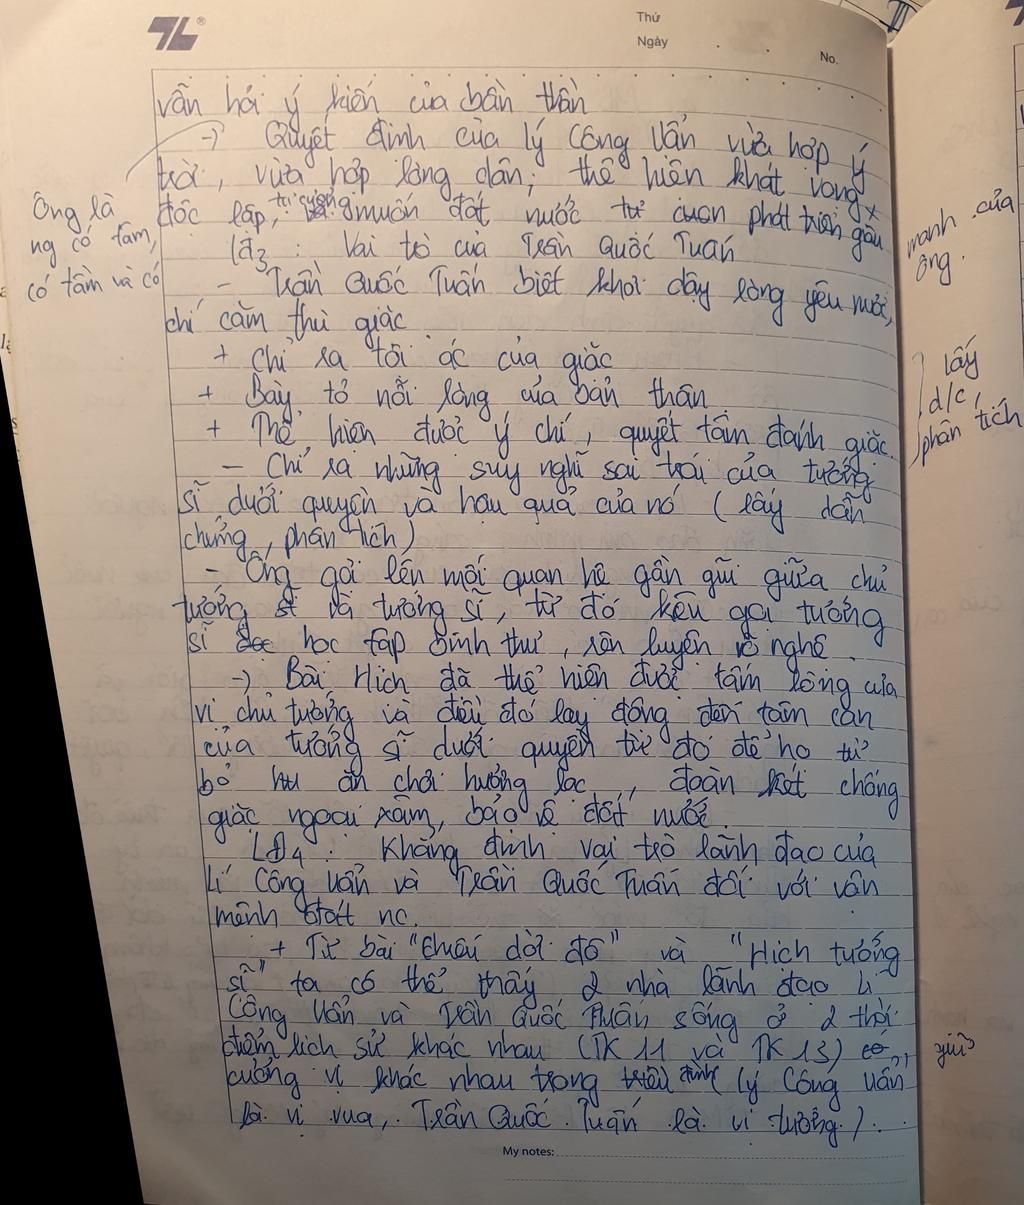 Thứ
Ngày
No.
vấn hỏi ý kiến của bần thần
→ Quyết định của lý Công Uẩn vừa hợp ý
trời, vừa hợp lòng dân; thể hiện khát vọng
độc lập, tự cường muốn đất nước tự cuon phát triển giàu
mạnh của
ông.
Ông là
ng có tâm,
có tầm và có
LĐ3: Vai trò của Trần Quốc Tuấn
- Trần Quốc Tuấn biết khơi dậy lòng yêu nước,
chí căm thù giặc
+ Chỉ ra tội ác của giặc
+ Bày tỏ nỗi lòng của bản thân
+ Thể hiện được ý chí, quyết tâm đánh giặc.
lấy
d/c,
phân tích
- Chỉ ra những suy nghĩ sai trái của tướng
sĩ dưới quyền và hậu quả của nó (lấy dẫn
chứng, phân tích)
- Ông gợi lên mối quan hệ gần gũi giữa chủ
tướng và tướng sĩ, từ đó kêu gọi tướng
sĩ học tập binh thư, rèn luyện võ nghệ.
→ Bài Hịch đã thể hiện được tấm lòng của
vị chủ tướng và điều đó lay động đến tâm can
của tướng sĩ dưới quyền từ đó để họ từ
bỏ thú ăn chơi hưởng lạc, đoàn kết chống
giặc ngoại xâm, bảo vệ đất nước.
LĐ4: Khẳng định vai trò lãnh đạo của
Lí Công Uẩn và Trần Quốc Tuấn đối với vận
mệnh đất nc.
+ Từ bài "Chiếu dời đô" và "Hịch tướng
sĩ" ta có thể thấy 2 nhà lãnh đạo Lí
Công Uẩn và Trần Quốc Tuấn sống ở 2 thời
điểm lịch sử khác nhau (TK 11 và TK 13), giữ
cương vị khác nhau trong triều đình (Lý Công Uẩn
là vị vua, Trần Quốc Tuấn là vị tướng).
My notes: